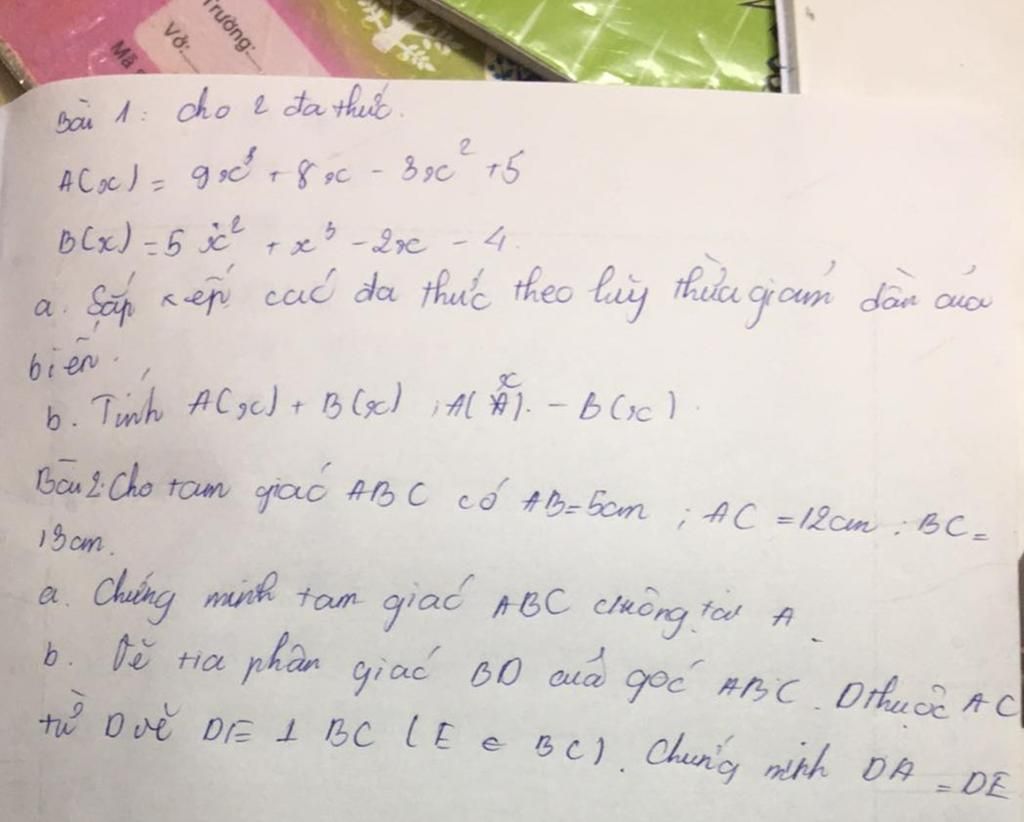 Trường:
Vở:
Mã
Bài 1: cho 2 đa thức.
A(x) = 9x³ + 8x - 3x² + 5
B(x) = 5x² + x³ - 2x - 4.
a. Sắp xếp các đa thức theo lũy thừa giảm dần của
biến.
b. Tính A(x) + B(x) ; A(x). - B(x).
Bài 2: Cho tam giác ABC có AB = 5cm ; AC = 12cm ; BC =
13cm.
a. Chứng minh tam giác ABC vuông tại A.
b. Vẽ tia phân giác BD của góc ABC. D thuộc AC
từ D vẽ DE ⊥ BC (E ∈ BC). Chứng minh DA = DE